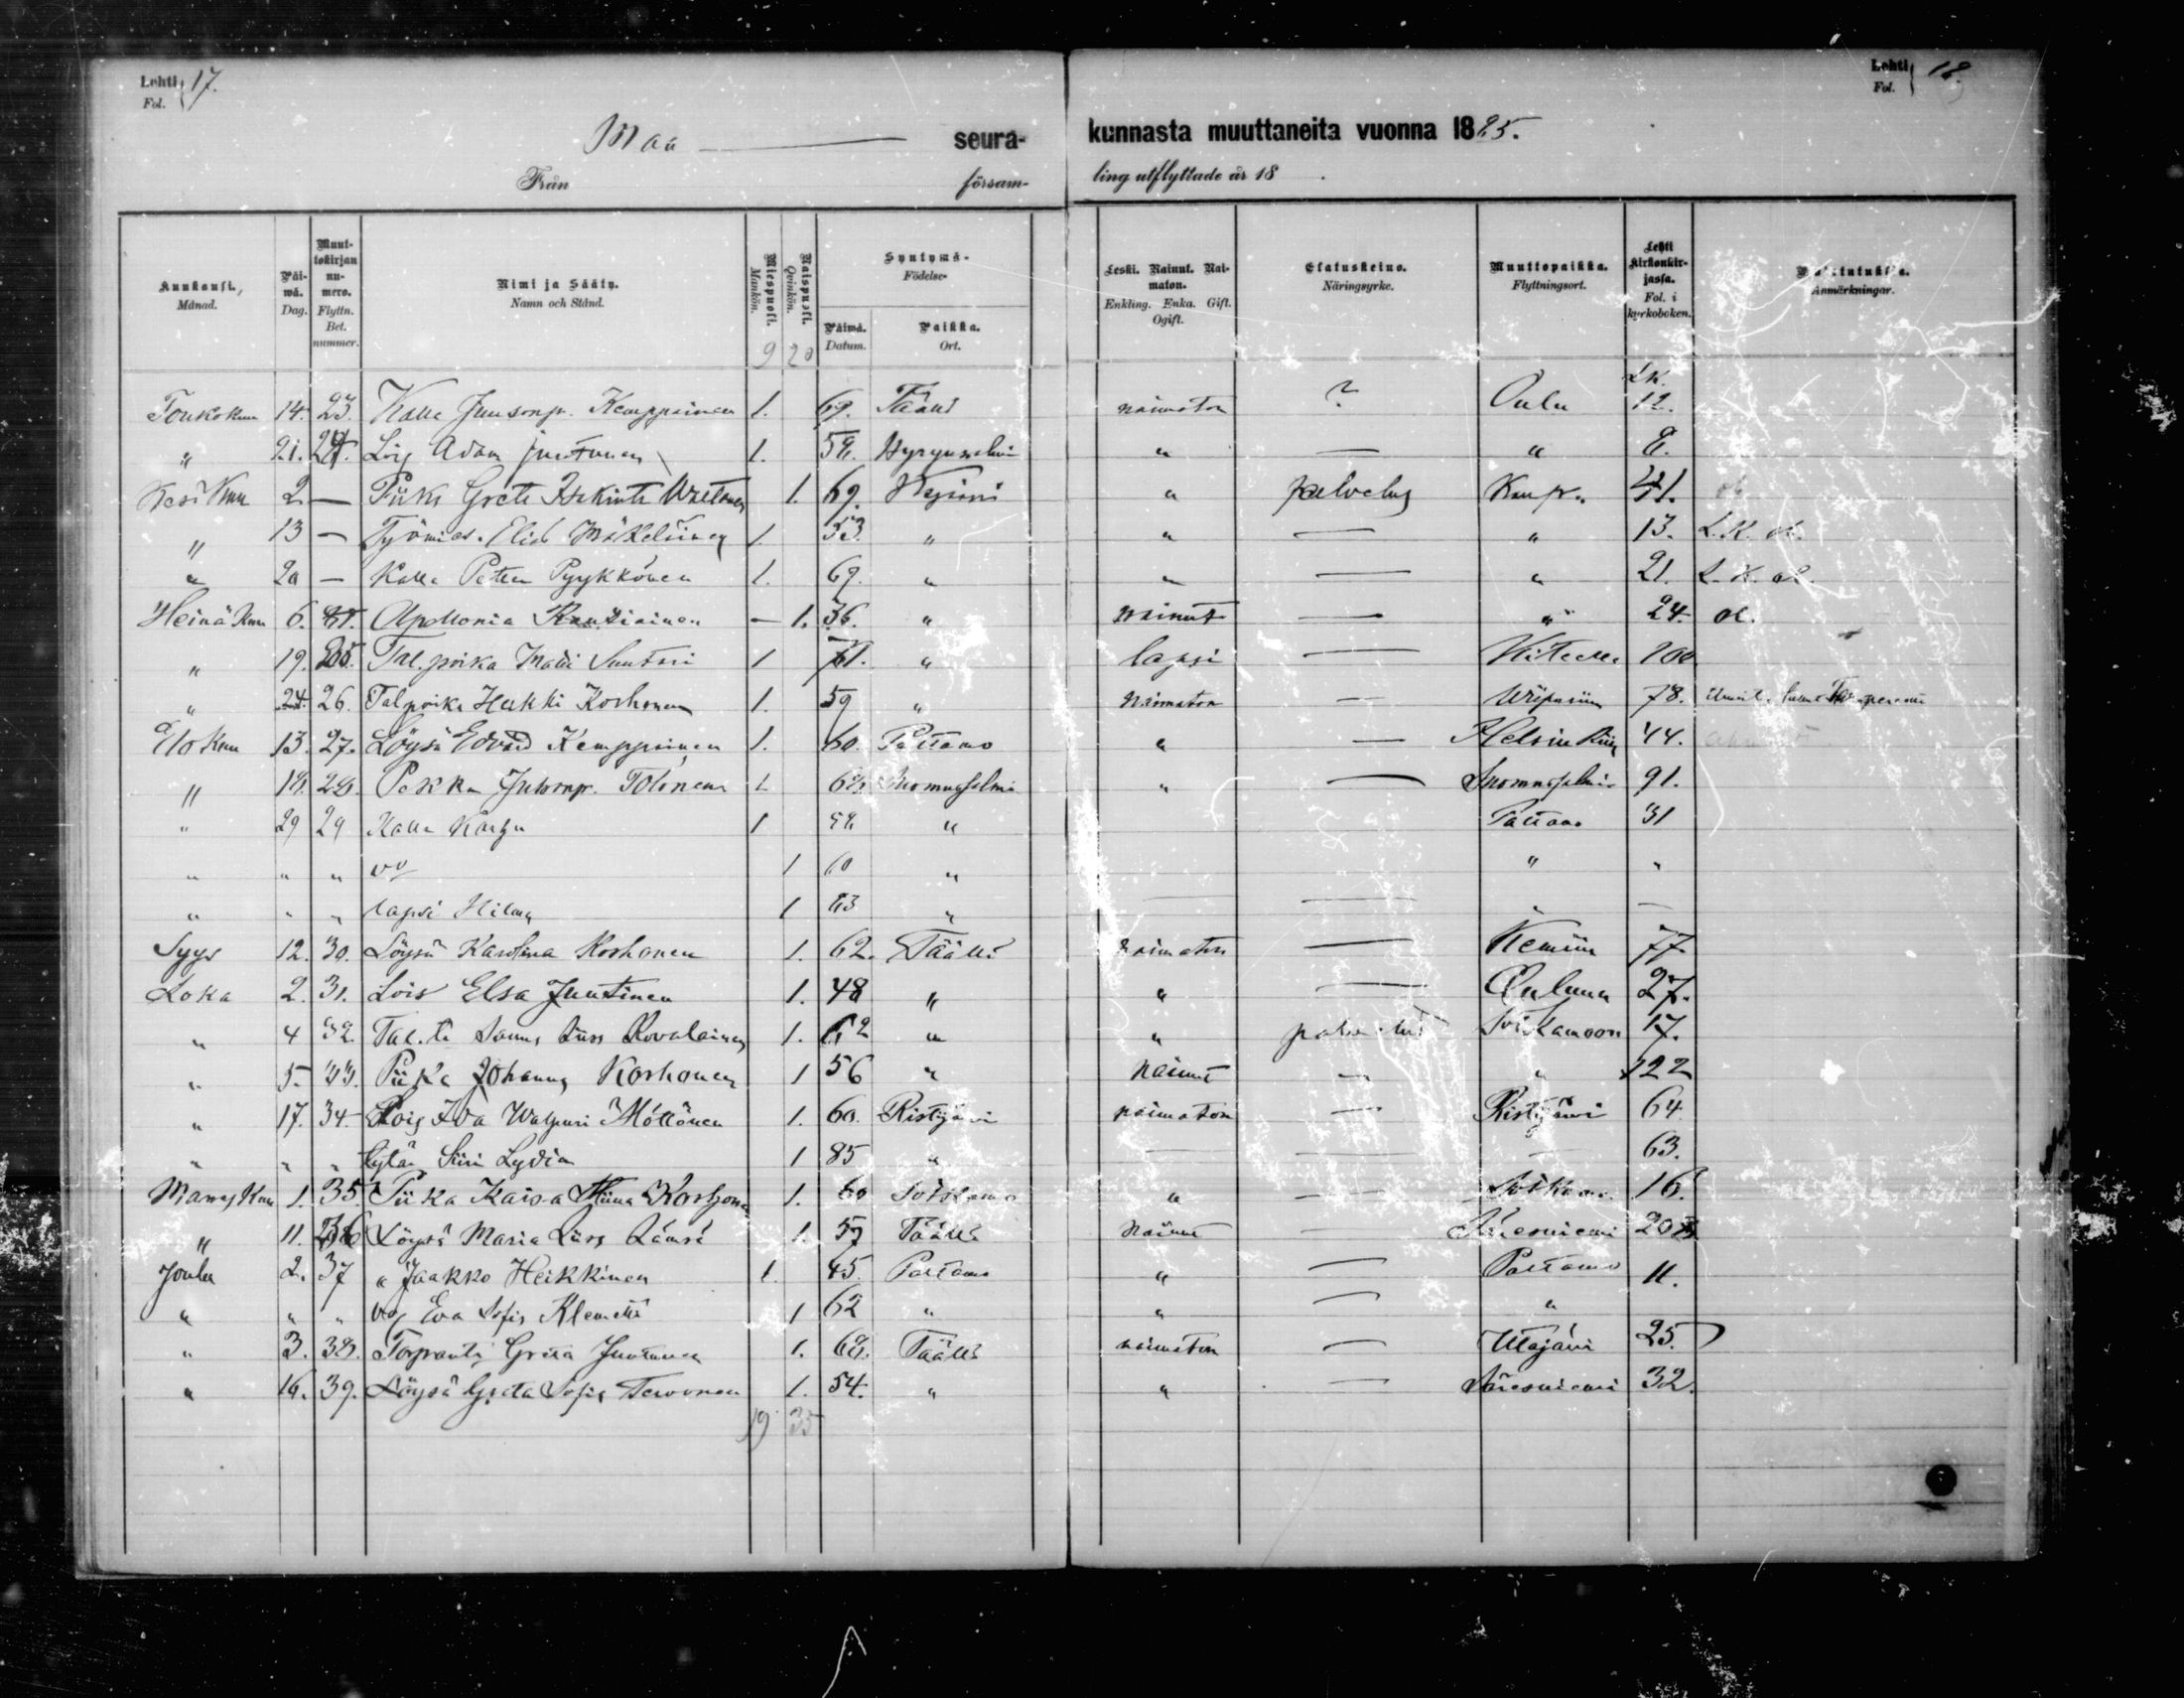 Lehti 17.
Fol.
Lehti 18.
Fol.
Maa seura- kunnasta muuttaneita vuonna 1885.
Från försam- ling utflyttade år 18 .
Kuukausi. Månad. Päi-wä. Dag. Muut-tokirjan nu-mero. Flyttn. Bet. nummer. Nimi ja Sääty. Namn och Stånd. Miespuoli. Mankön. Naispuoli. Qvinkön. Syntymä- Födelse- Päiwä. Datum. Paikka. Ort. Leski. Nainut. Nai-maton. Enkling. Enka. Gift. Ogift. Elatuskeino. Näringsyrke. Muuttopaikka. Flyttningsort. Lehti Kirkonkir-jassa. Fol. i kyrkoboken. Muistutuksia. Anmärkningar.
9 20
Toukokuu 14. 23. Kalle Juusonp. Kemppainen 1. 69. Täällä naimaton ? Oulu LK. 12.
" 21. 24. Lois Adam Juntunen 1. 58. Hyrynsalmi " — " 8.
Kesä Kuu 2 — Piika Greta 1. 69. " palvelus 41.
" 13 — Työmies. Elias Mäkeläinen 1. 53. " " — " 13. L.K. ol.
" 20 — Kalle Petter Pyykkönen 1. 69. " " — " 21. L.K. ol.
Heinä Kuu 6. Apollonia — 1. 36. " nainut — " 24. ol.
" 19. 25. Tal.poika Matti 1 71. " lapsi — 100
" 24. 26. Talpoika Heikki Korhonen 1. 59 " naimaton — Wiipuriin 78.
Elo Kuu 13. 27. Löysä Edvard Kemppainen 1. 60. Paltamo " — Helsinkiin 44.
" 18. 28. Pekka Tolonen 1. 68. Suomussalmi " — Suomussalmi 91.
" 29 29 Kalle 1 58 " Paltamo 31
" " " vo 1 60 " " "
" " " lapsi Hilma 1 83 " — — " —
Syys 12. 30. Löysä Karolina Korhonen 1. 62. Täällä naimaton — Kemiin 77.
Loka 2. 31. Lois Elsa Juntinen 1. 48 " " — Ouluun 27.
" 4 32. Tal.t. Kovalainen 1. 62 " " palvelus Sotkamoon 17.
" 5. 33. Piika Johanna Korhonen 1 56 " nainut — " 122
" 17. 34. Lois Ida Walpuri Möttönen 1. 60. Ristijärvi naimaton — Ristijärvi 64.
" " " tytär Siiri Lydia 1 85 " — — — 63.
Marras Kuu 1. 35. Piika Kaisa Stiina Korhonen 1. 60 Sotkamo " — Sotkamo 16.
" 11. 36 Löysä Maria Liisa Lämsä 1. 59 Täällä nainut — Säresniemi
Joulu 2. 37 " Jaakko Heikkinen 1. 45. Paltamo " — Paltamo 11.
" " " vo Eva Sofia Klemetti 1 62 " " — "
" 3. 38. Greta Juntunen 1. 68. Täällä naimaton — Utajärvi 25.
" 16. 39. Löysä Greta Sofia Tervonen 1. 54. " " — Säresniemi 32.
19 35